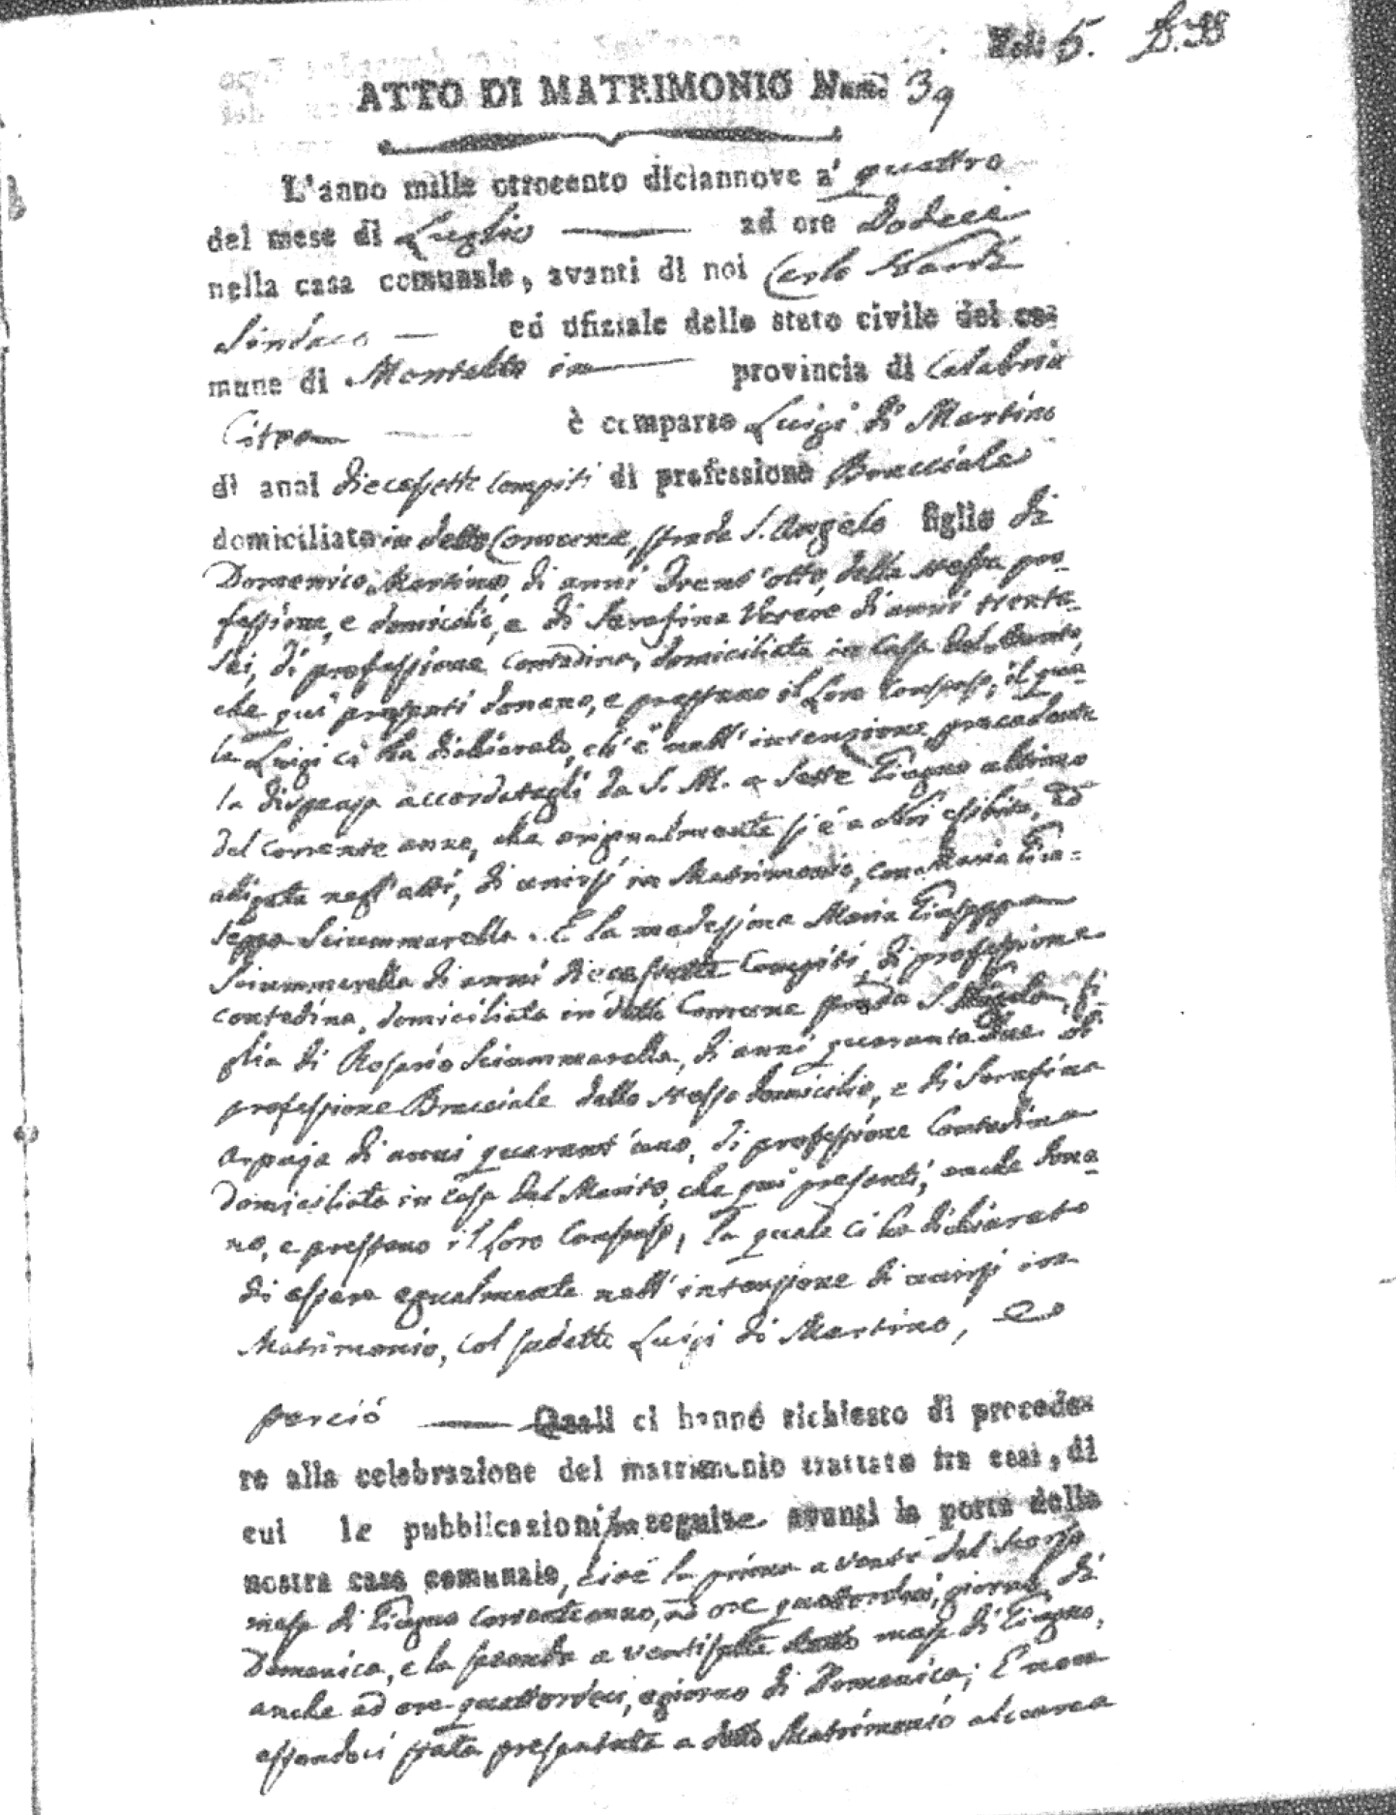 Fol: 5.
ATTO DI MATRIMONIO Num: 39
L'anno mille ottocento diciannove a' quattro
del mese di Luglio ad ore Dodeci
nella casa comunale, avanti di noi Carlo
Sindaco ed ufiziale dello stato civile del co-
mune di Montalto in provincia di Calabria
Citra è comparso Luigi di Martino
di anni diecessette compiti di professione Bracciale
domiciliato in detto Comune, strada S. Angelo figlio di
Domenico Martino, di anni Trent'otto, della stessa pro-
fessione, e domicilio, e di Serafina di anni trenta-
sei, di professione Contadina, domiciliata in Casa del Marito,
che qui presenti donano, e prestano il Loro Consenso, il qua-
le Luigi ci ha dichiarato, ch'è nell'intenzione precedente
la dispensa accordatagli da S. M. a Sette Giugno ultimo
del corrente anno, che originalmente si è a Noi esibita, ed
alligata negl'atti, di unirsi in Matrimonio, con Maria Giu-
seppa Sciammarella. E la medesima Maria Giuseppa
Sciammarella di anni diecessette Compiti, di professione
contadina, domiciliata in detto Comune strada S. Angelo, fi-
glia di Rosario Sciammarella, di anni quaranta due di
professione Bracciale dello stesso domicilio, e di Serafina
Arpaja di anni quarant'uno, di professione Contadina
domiciliata in Casa del Marito, che qui presenti, anche dona-
no, e prestano il Loro Consenso, la quale ci ha dichiarato
di essere egualmente nell'intenzione di unirsi in
Matrimonio, col sudetto Luigi di Martino, e
perciò Quali ci hanno richiesto di procede-
re alla celebrazione del matrimonio trattato tra essi, di
cui le pubblicazioni son seguite avanti la porta della
nostra casa comunale, cioè la prima a venti del scorso
mese di Giugno corrente anno, ad ore quattordeci, giorno di
Domenica, e la seconda a ventisette detto mese di Giugno,
anche ad ore quattordeci, e giorno di Domenica; E non
essendoci stata presentata a detto Matrimonio alcuna